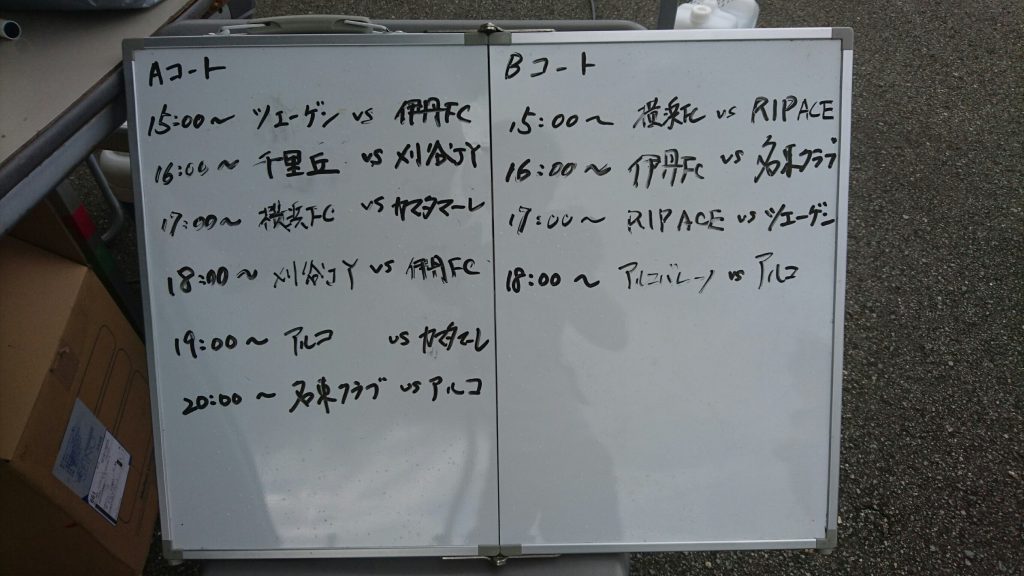 Aコート
15:00〜 ツエーゲン vs 伊丹FC
16:00〜 千里丘 vs 刈谷JY
17:00〜 横浜FC vs カマタマーレ
18:00〜 刈谷JY vs 伊丹FC
19:00〜 アルコ vs カマタマーレ
20:00〜 名東クラブ vs アルコ
Bコート
15:00〜 横浜FC vs RIPACE
16:00〜 伊丹FC vs 名東クラブ
17:00〜 RIPACE vs ツエーゲン
18:00〜 アルコバレーノ vs アルコ